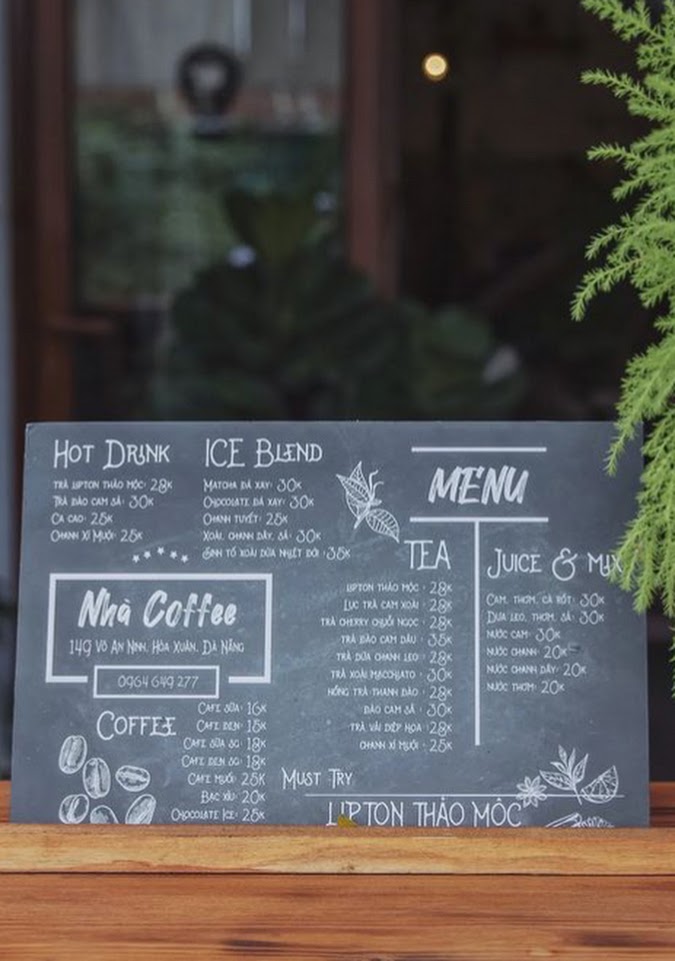 HOT DRINK
TRÀ LIPTON THẢO MỘC: 28K
TRÀ ĐÀO CAM SẢ: 30K
CA CAO: 25K
CHANH XÍ MUỘI: 25K
ICE BLEND
MATCHA ĐÁ XAY: 30K
CHOCOLATE ĐÁ XAY: 30K
CHANH TUYẾT: 25K
XOÀI, CHANH DÂY, SẢ: 30K
SINH TỐ XOÀI DỨA NHIỆT ĐỚI: 35K
MENU
Nhà Coffee
149 VÕ AN NINH, HÒA XUÂN, ĐÀ NẴNG
0964 649 277
COFFEE
CAFE SỮA: 16K
CAFE ĐEN: 15K
CAFE SỮA SG: 18K
CAFE ĐEN SG: 18K
CAFE MUỐI: 25K
BẠC XỈU: 20K
CHOCOLATE ICE: 25K
TEA
LIPTON THẢO MỘC: 28K
LỤC TRÀ CAM XOÀI: 28K
TRÀ CHERRY CHUỖI NGỌC: 28K
TRÀ ĐÀO CAM DÂU: 35K
TRÀ DỨA CHANH LEO: 28K
TRÀ XOÀI MACCHIATO: 30K
HỒNG TRÀ THANH ĐÀO: 28K
ĐÀO CAM SẢ: 30K
TRÀ VẢI DIỆP HOA: 28K
CHANH XÍ MUỘI: 25K
JUICE & MIX
CAM, THƠM, CÀ RỐT: 30K
DƯA LEO, THƠM, SẢ: 30K
NƯỚC CAM: 30K
NƯỚC CHANH: 20K
NƯỚC CHANH DÂY: 20K
NƯỚC THƠM: 20K
MUST TRY
LIPTON THẢO MỘC